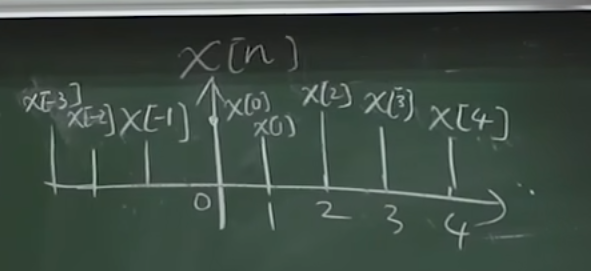 x[n]
x[-3] x[-2] x[-1] x[0] x[1] x[2] x[3] x[4]
0 1 2 3 4